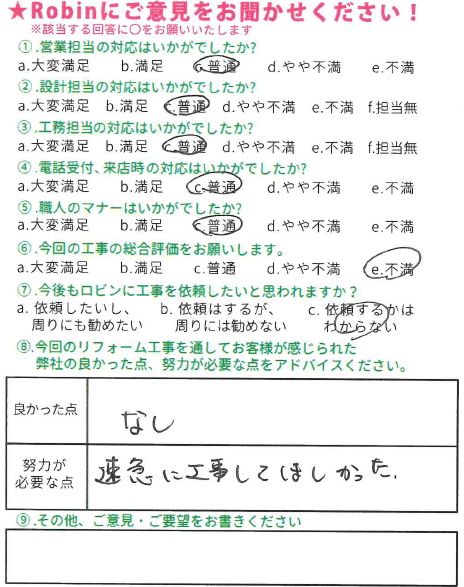 ★Robinにご意見をお聞かせください！
※該当する回答に〇をお願いいたします
①.営業担当の対応はいかがでしたか?
a.大変満足 b.満足 c.普通 d.やや不満 e.不満
②.設計担当の対応はいかがでしたか?
a.大変満足 b.満足 c.普通 d.やや不満 e.不満 f.担当無
③.工務担当の対応はいかがでしたか?
a.大変満足 b.満足 c.普通 d.やや不満 e.不満 f.担当無
④.電話受付、来店時の対応はいかがでしたか?
a.大変満足 b.満足 c.普通 d.やや不満 e.不満
⑤.職人のマナーはいかがでしたか?
a.大変満足 b.満足 c.普通 d.やや不満 e.不満
⑥.今回の工事の総合評価をお願いします。
a.大変満足 b.満足 c.普通 d.やや不満 e.不満
⑦.今後もロビンに工事を依頼したいと思われますか？
a. 依頼したいし、 b. 依頼はするが、 c. 依頼するかは
周りにも勧めたい 周りには勧めない わからない
⑧.今回のリフォーム工事を通してお客様が感じられた
弊社の良かった点、努力が必要な点をアドバイスください。
良かった点 なし
努力が
必要な点 速急に工事してほしかった.
⑨.その他、ご意見・ご要望をお書きください